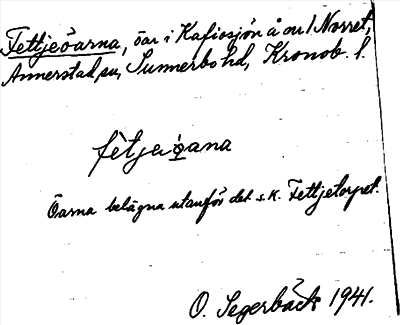 Fettjeöarna, öar i Kafjosjön å nr 1 Norret,
Annerstad sn, Sunnerbo hd, Kronob. l.
fètjeͥöana
Öarna belägna utanför det s.k. Fettjetorpet.
O. Segerbäck 1941.